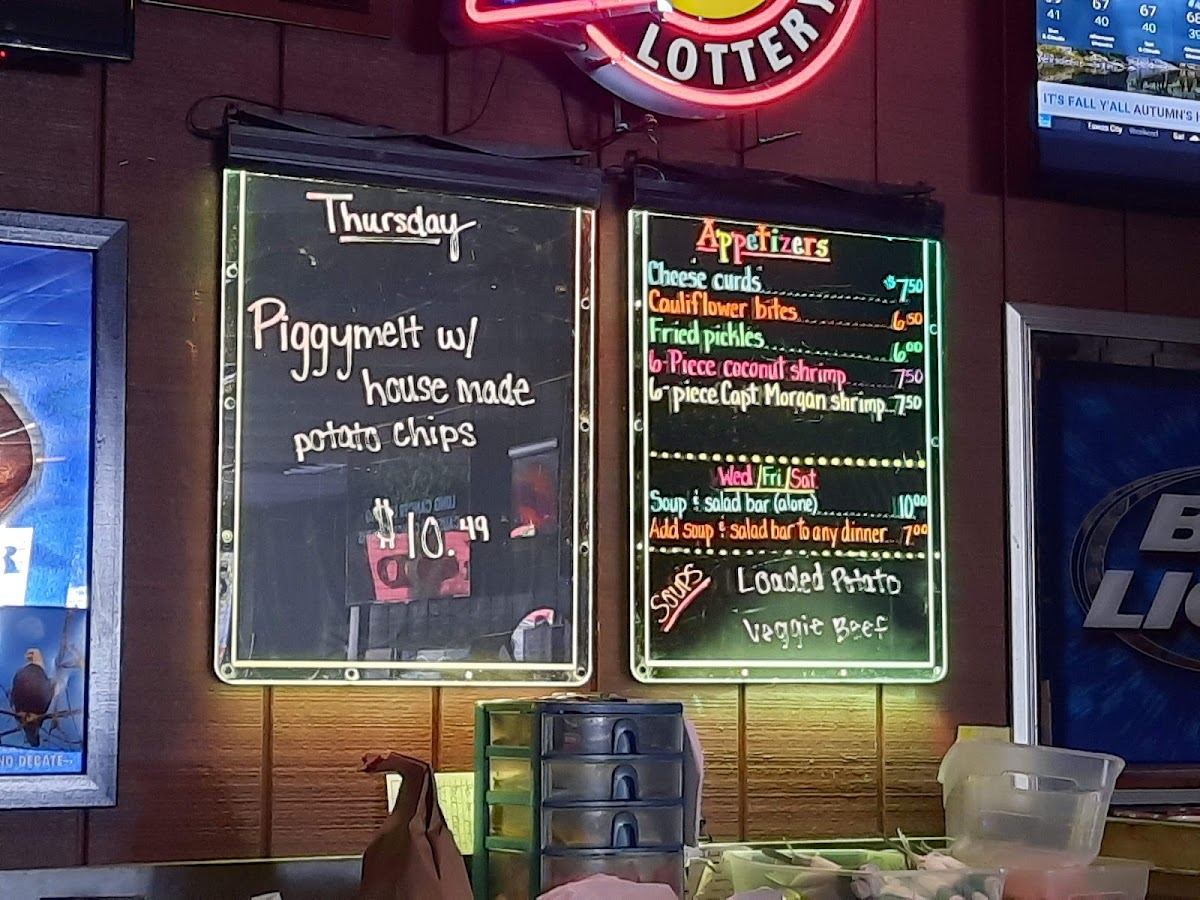 LOTTERY
41
67
40
67
40
IT'S FALL Y'ALL AUTUMN'S
Tawas City Weekend
Thursday
Piggymelt w/
house made
potato chips
$10.49
Appetizers
Cheese curds $7.50
Cauliflower bites 6.50
Fried pickles 6.00
6-Piece coconut shrimp 7.50
6-piece Capt Morgan shrimp 7.50
Wed/Fri/Sat
Soup & salad bar (alone) 10.00
Add soup & salad bar to any dinner 7.00
Soups
Loaded Potato
Veggie Beef
NO DEBATE
LI